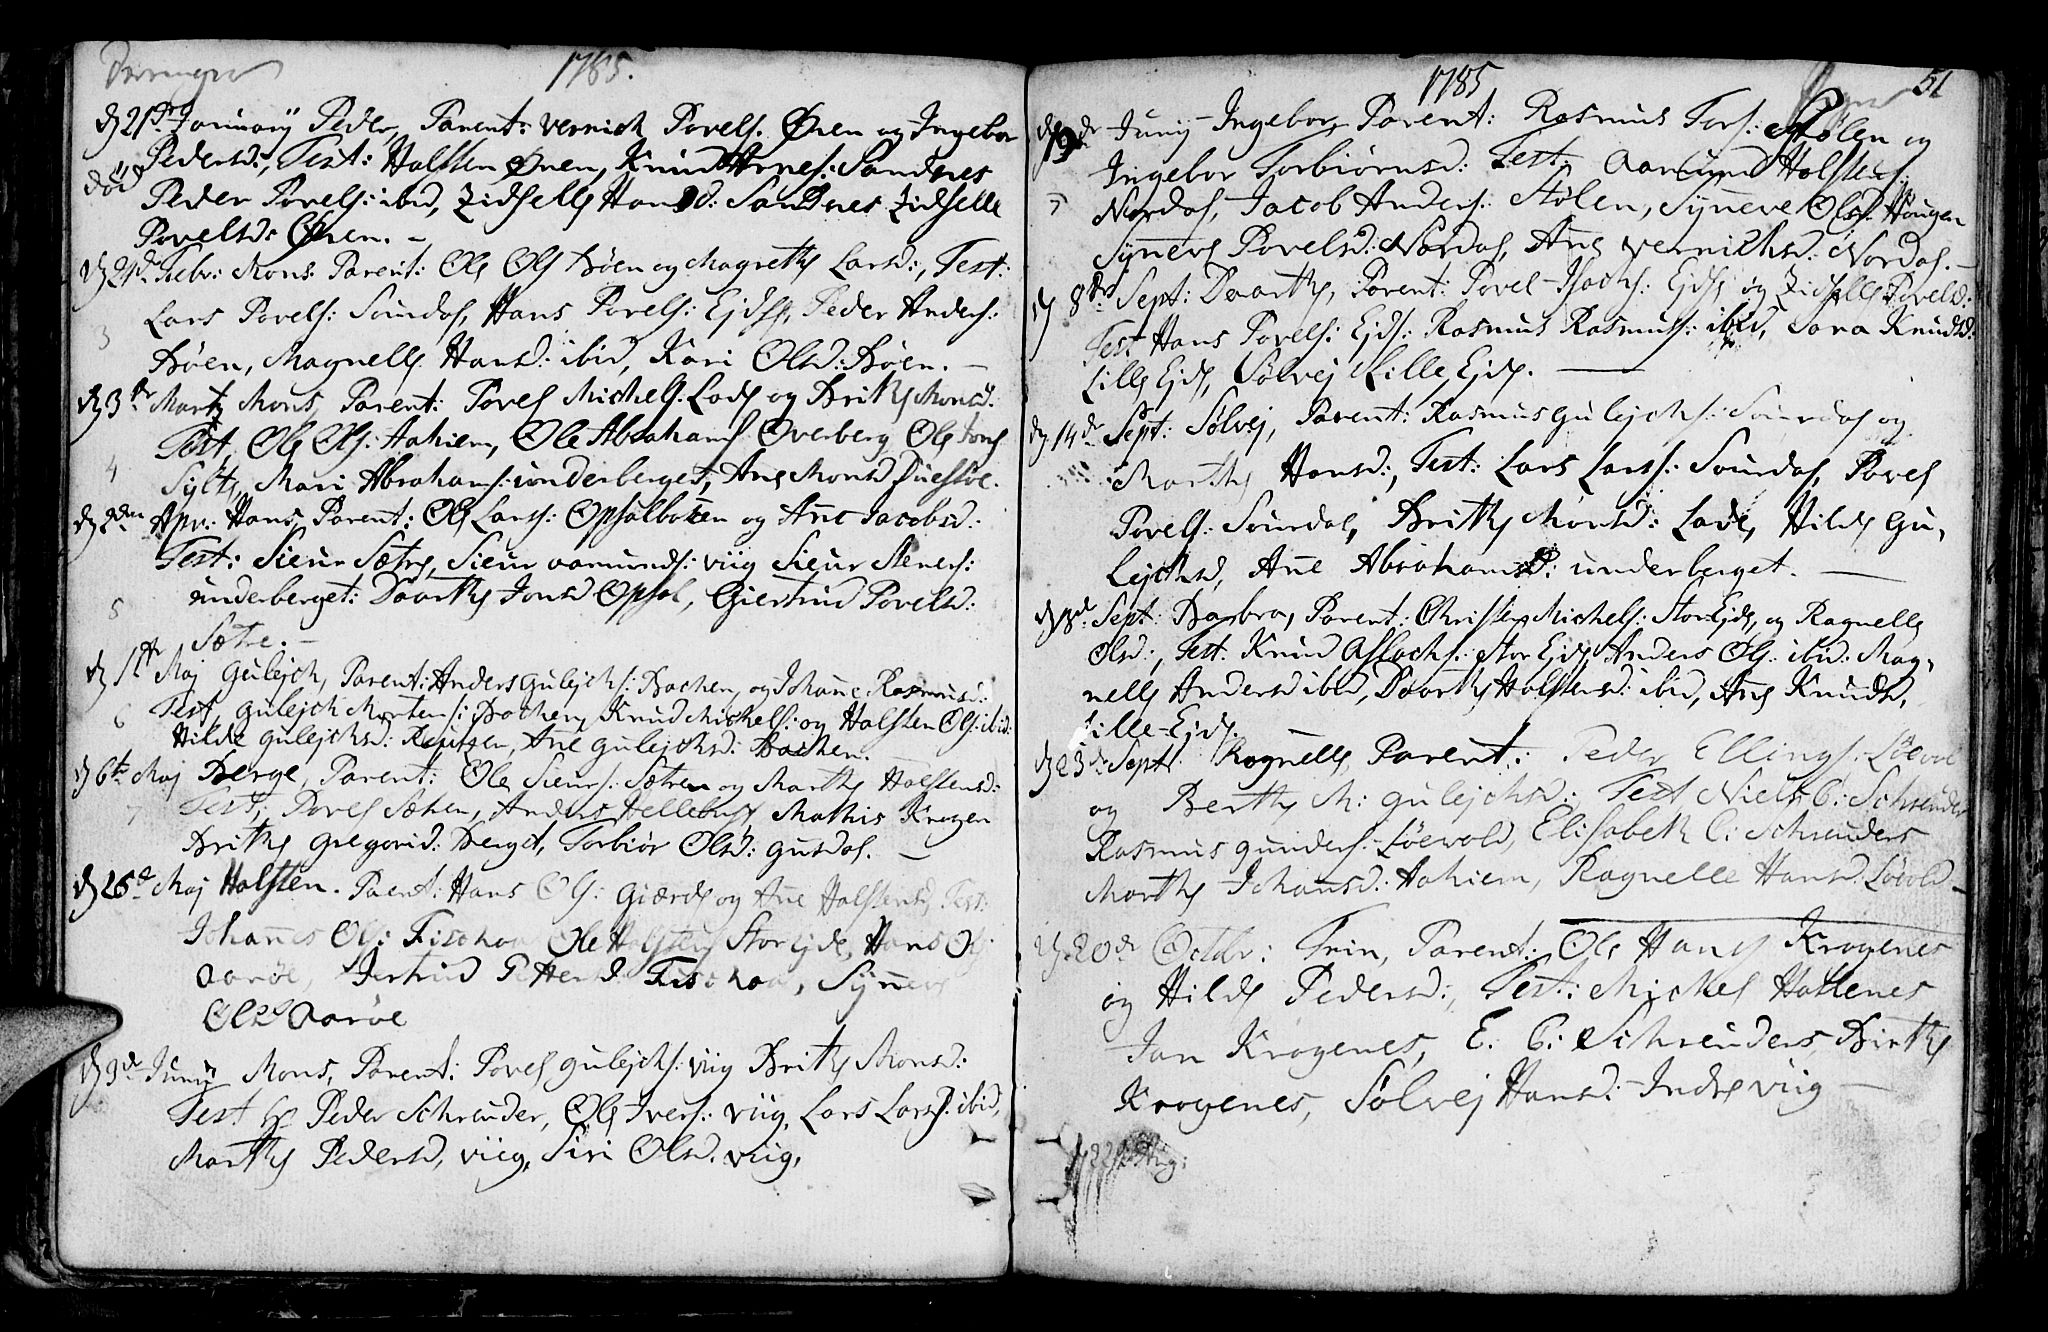 1785.
d 21de January Peder, Parent: Vernich Povels. Øren og Ingebor
død Pedersd:, Test: Halsten Øren, Knud Arnes: Sandnes
Peder Povels: ibid, Zidselle Hansd: Sandnes Zidselle
Povelsd: Øren. –
d 21de Febr: Mons Parent: Ole Ols Bøen og Magrethe Larsd:, Test:
3 Lars Povels: Suurdal, Hans Povels: Ejde, Peder Anders:
Bøen, Magnelle Hansd: ibid, Kari Olsd: Bøen. –
d 3de Marty Mons, Parent: Povel Michels. Lade og Brithe Monsd:
Test, Ole Ols: Aahiem, Ole Abrahams Overberg Ole Jons
4 Sylte, Mari Abrahams: underberget, Ane Monsd
d 2den Apr: Hans, Parent: Ole Lars: Opsalbøen og Ane Jacobsd:
Test: Sieur Sætre, Sieur Aamunds: Viig Sieur Stenes:
5 underberget: Daarthe Jonsd Opsal, Giertrud Povelsd:
Sætre. –
d 1te Maj Gulejch, Parent: Anders Gulejchs: Bachen, og Johanne Rasmusd:
6 Test, Gulejch Mortens: Bachen, Knud Michels: og Halsten Ols: ibid:
Hilde Gulejchsd: Ane Gulejchsd: Bachen.
d 6te Maj Berge, Parent: Ole Sieurs: Sætren og Marthe Halstensd:
7 Test; Povel Sæten, Anders Hellebust Mathis Krogen
Brithe Gregorid: Berget, Torbiør Olsd: Gusdal. –
d 26de Maj Halsten. Parent: Hans Ols: Giærde og Ane Halstensd, Test:
Johannes Ols: Fischaa Ole Halstens StorEjde, Hans Ols:
Aarøe, Jertrud Pettersd Fischaa, Synneve
Olsd Aarøe
d 9de Juny Mons, Parent: Povel Gulejchs: Viig Brithe Monsd:
Test Hr Peder Schreuder, Ole Ivers: Viig, Lars Lars: ibid,
Marthe Pedersd, Viig, Siri Olsd. Viig,
1785
51
d 19de Juny Ingebor, Parent: Rasmus Tors: Stølen og
Ingebor Torbiørnsd: Test, Aamund Halstens:
Nordal, Jacob Anders: Stølen, Synneve Olsd: Haugen
Synneve Povelsd: Nordal, Ane Vernichsd: Nordal. –
d 8de Sept: Daarthe, Parent: Povel Isachs: Ejde og Zidselle Povelsd:
Test Hans Povels: Ejde: Rasmus Rasmuss: ibid, Sara Knudsd:
Lille Ejde, Sølvej Lille Ejde. –
d 14de Sept: Sølvej, Parent: Rasmus Gulejchs: Suurdal og
Marthe Hansd:, Test: Lars Lars: Suurdal, Povel
Povels: Suurdal, Brithe Monsd: Lade, Hilde Gu,
lejchsd, Ane Abrahamsd: underberget. –
d 18de Sept: Barbra, Parent: Christen Michels: StorEjde, og Ragnelle
Olsd:, Test: Knud Aslachs: StorEjde, Anders Ols: ibid: Mag,
nelle Andersd ibid, Daarthe Halstensd: ibid, Ane Knudsd,
Lille-Ejde.
d 23de Sept: Ragnelle Parent: Peder Ellings: Løevold
og Berthe M: Gulejchsd:, Test Niels C: Schreuder
Rasmus Gunders: Løevold, Elisabeth C: Schreuders
Marthe Johansd: Aahiem, Ragnelle Hansd: Løvold –
d. 20de Octbr: Trin, Parent: Ole Hans Krogenes
og Hilde Pedersd:, Test: Mickel Hattenes
Jan Krogenes, E. C: Schreuders, Birthe
Krogenes, Sølvej Hansd: Indreviig –